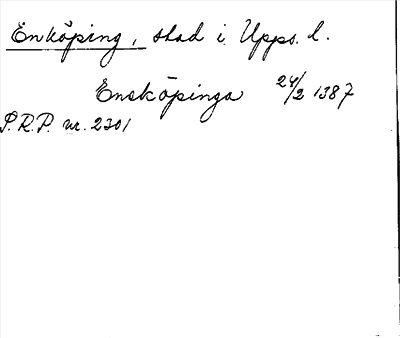 Enköping, stad i Upps. l.
Ensköpinga 24/2 1387
P.R.P. nr. 2301